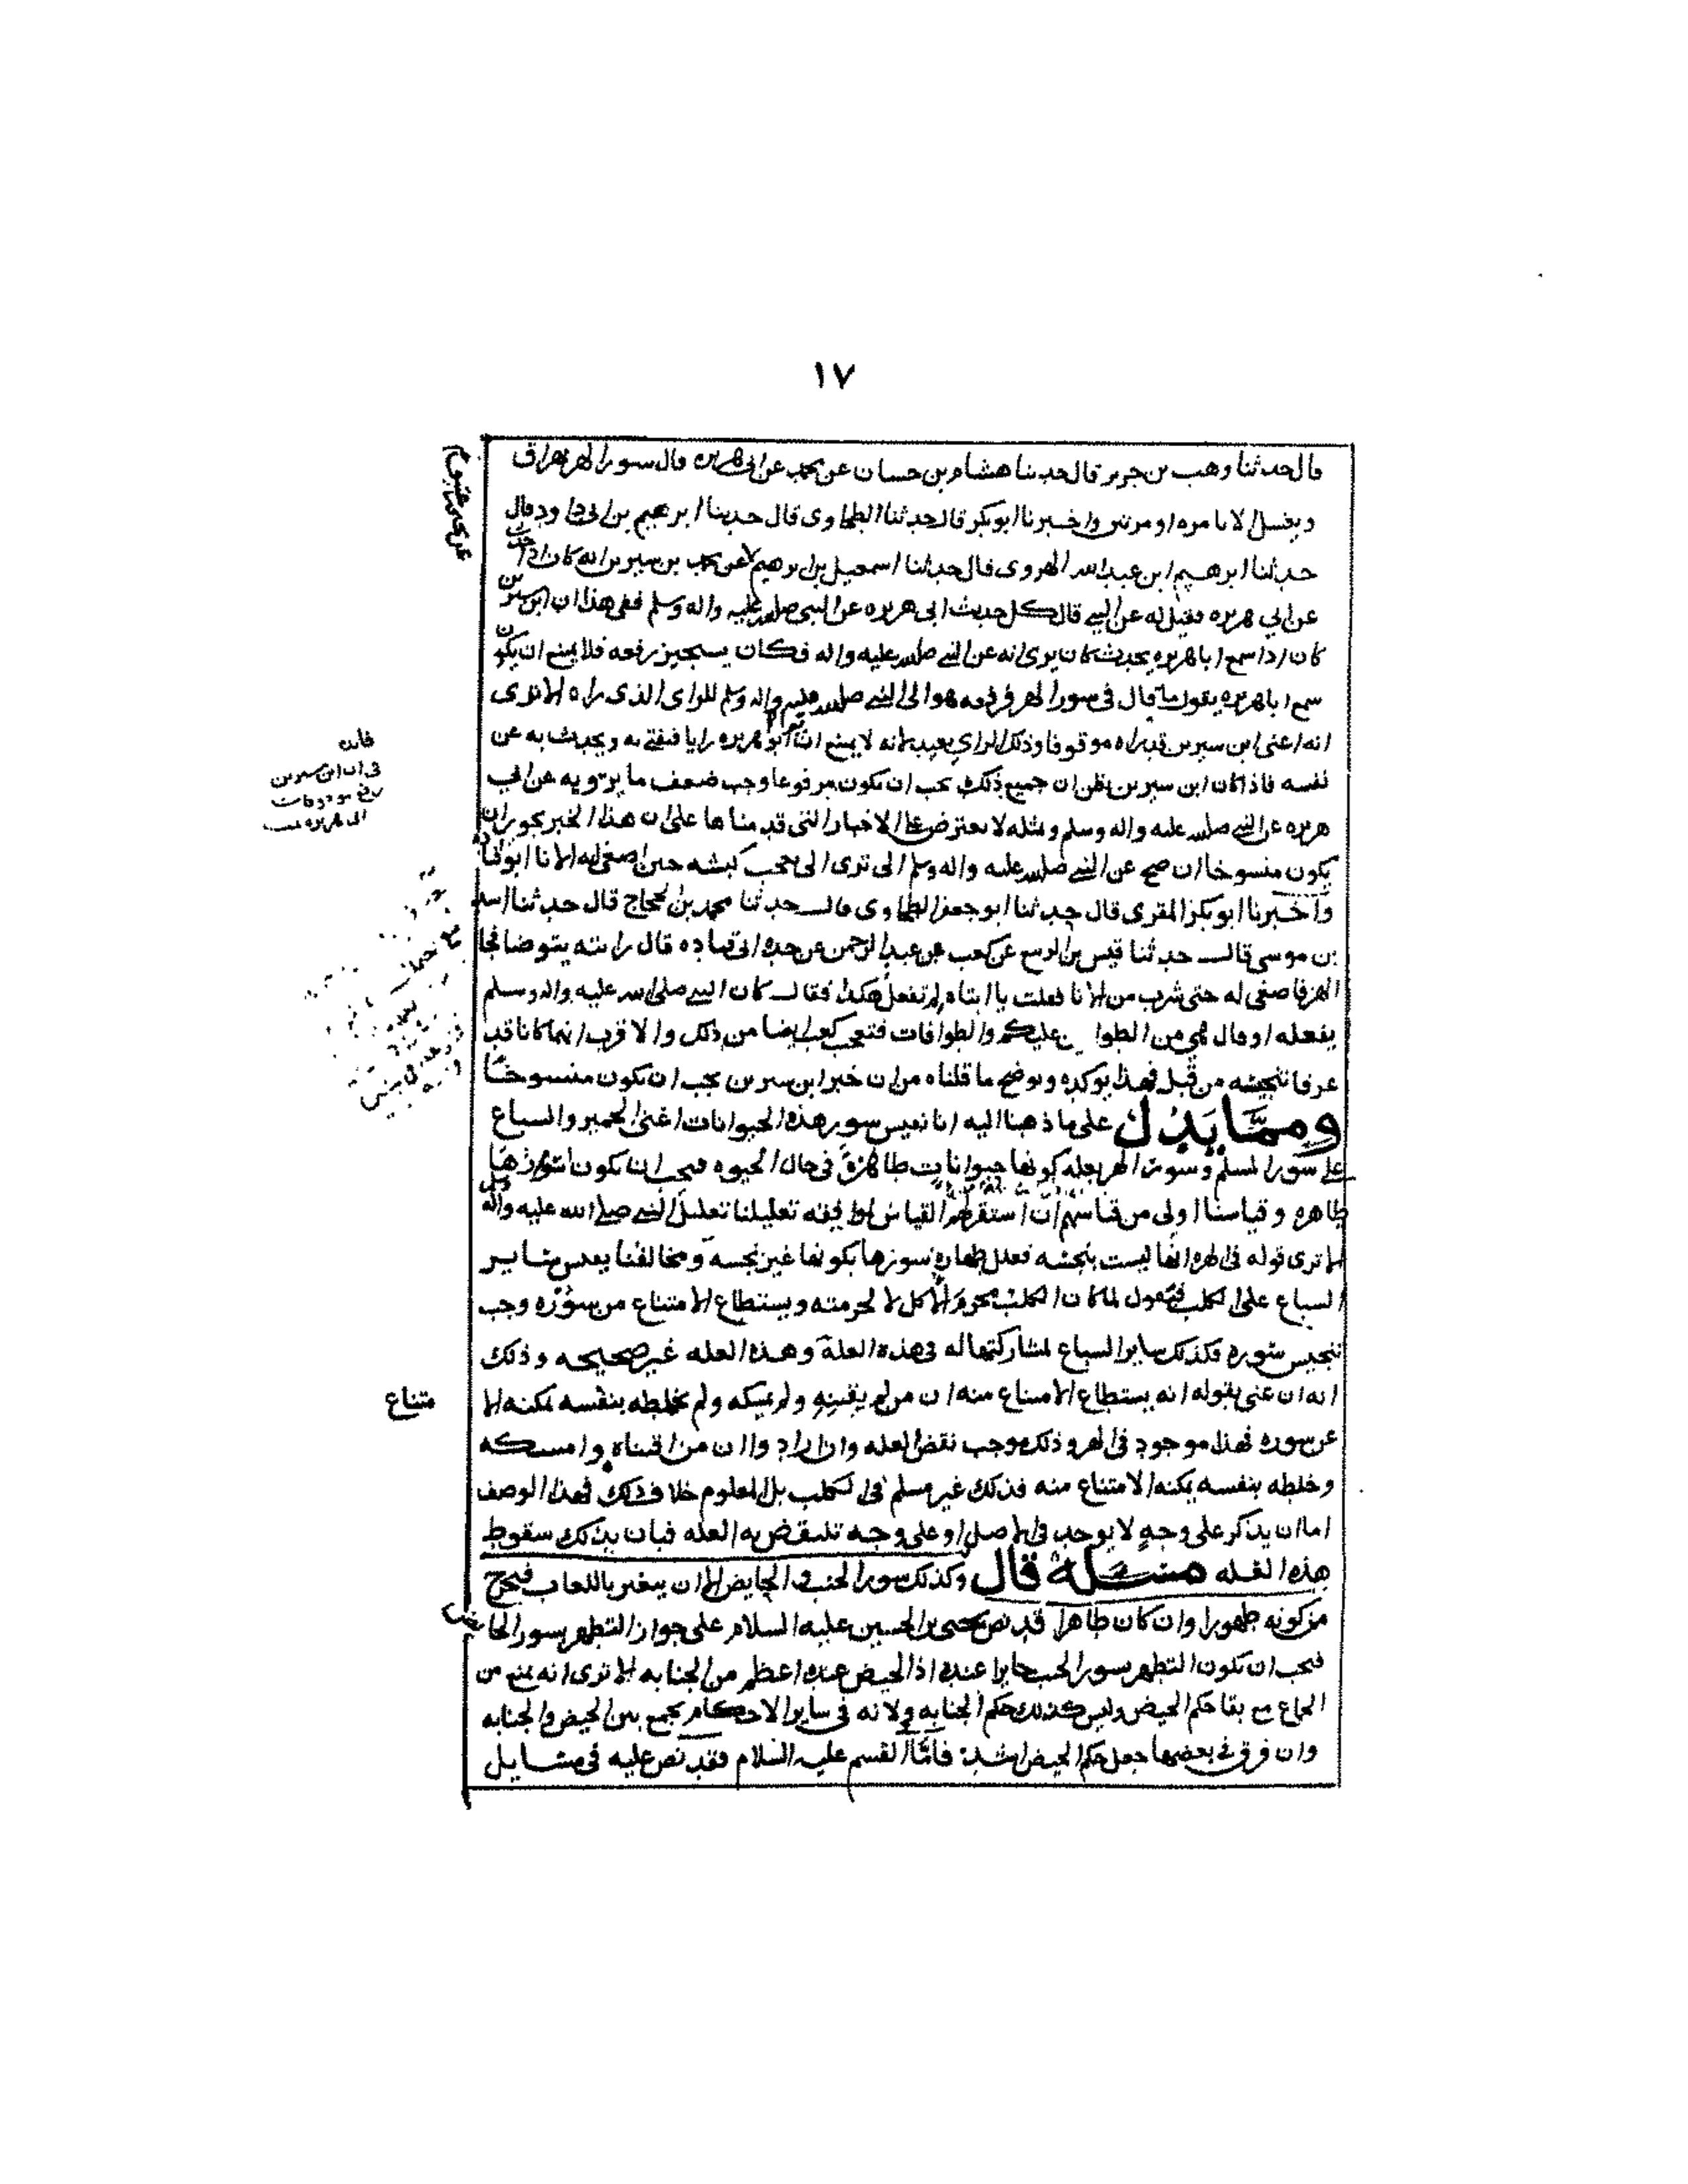 ١٧
قال حدثنا وهب بن جرير قال حدثنا هشام بن حسان عن محمد عن ابى هريره قال سور الهر يهراق
ويغسل الانا مره او مرتين واخبرنا ابو بكر قال حدثنا الطحاوى قال حدثنا ابرهيم بن ابى داود قال
حدثنا ابرهيم ابن عبد الله الهروى قال حدثنا اسمعيل بن ابرهيم عن محمد بن سيرين انه كان اذا حدث
عن ابي هريره فقيل له عن النبي قال كل حديث ابى هريره عن النبى صلى الله عليه واله وسلم ففى هذا ان ابن سيرين
كان اذا سمع ابا هريره يحدث كان يرى انه عن النبي صلى الله عليه واله فكان يستجيز رفعه فلا يمنع ان يكون
سمع ابا هريره يقول ما قال فى سور الهر فرفعه هو الى النبي صلى الله عليه واله وسلم للراى الذى راه الا ترى
انه اعنى ابن سيرين قد راه موقوفا وذلك الراي بعيد لانه لا يمنع ان ابو هريره رايا فيفتي به ويحدث به عن
نفسه فاذا كان ابن سيرين يظن ان جميع ذلك يجب ان يكون مرفوعا وجب ضعف ما يرويه عن ابي
هريره عن النبي صلى الله عليه واله وسلم ومثله لا يعترض على الاخبار التى قدمناها على ان هذا الخبر يجوز ان
يكون منسوخا ان صح عن النبي صلى الله عليه واله وسلم الى ترى الى تعجب كبشه حين اصغى لها الانا ابو قتاده
واخبرنا ابو بكر المقرى قال حدثنا ابو جعفر الطحاوى قال حدثنا محمد بن الحجاج قال حدثنا اسد
بن موسى قال حدثنا قيس بن الربيع عن كعب بن عبد الرحمن عن جده ابى قتاده قال رايته يتوضا فجا
الهر فاصغى له حتى شرب من الانا فقلت يا ابتاه لم تفعل هكذا فقال كان النبي صلى الله عليه واله وسلم
يفعله او قال هي من الطوافين عليكم والطوافات فتعجب كعب ايضا من ذلك والاقرب انهما كانا قد
عرفا تنجيسه من قبل فهذا يوكده ويوضح ما قلناه من ان خبر ابن سيرين يجب ان يكون منسوخا
ومما يدل على ما ذهبنا اليه انا نقيس سور هذه الحيوانات اعنى الحمير والسباع
على سور المسلم وسور الهر بعله كونها حيوانات طاهرة فى حال الحيوه فيجب ان يكون اسوارها
طاهره وقياسنا اولى من قياسهم ان استقر لهم القياس لموافقته تعليلنا تعليل النبي صلى الله عليه واله وسلم
الا ترى قوله فى الهره انها ليست بنجسه فعلل طهاره سورها بكونها غير نجسه ومخالفنا يقيس ساير
السباع على الكلب فيقول لما كان الكلب محرم الاكل لا لحرمته ويستطاع الامتناع من سوره وجب
تنجيس سوره فكذلك ساير السباع لمشاركتها له فى هذه العلة وهذه العله غير صحيحه وذلك
انه ان عنى بقوله انه يستطاع الامتناع منه ان من لم يقتنيه ولم يمسكه ولم يخلطه بنفسه يمكنه الامتناع
عن سوره فهذا موجود فى الهر وذلك موجب نقض العله وان ارادوا ان من اقتناه وامسكه
وخلطه بنفسه يمكنه الامتناع منه فذلك غير مسلم فى الكلب بل المعلوم خلاف ذلك فهذا الوصف
اما ان يذكر على وجه لا يوجد فى الاصل او على وجه تنتقض به العله فبان بذلك سقوط
هذه العله مسئلة قال وكذلك سور الجنب والحايض الا ان يتغير باللعاب فيخرج
من كونه طهورا وان كان طاهرا قد نص يحيى بن الحسين عليه السلام على جواز التطهر بسور الحائض
فيجب ان يكون التطهر بسور الجنب جايزا عنده اذ الحيض عنده اعظم من الجنابه الا ترى انه يمنع من
الجماع مع بقا حكم الحيض وليس كذلك حكم الجنابه ولانه فى ساير الاحكام يجمع بين الحيض والجنابه
وان فرق فى بعضها جعل حكم الحيض اشد فاما القسم عليه السلام فقد نص عليه فى مسايل
فايده
فى ان ابن سيرين
رفع موقوفات
ابى هريره